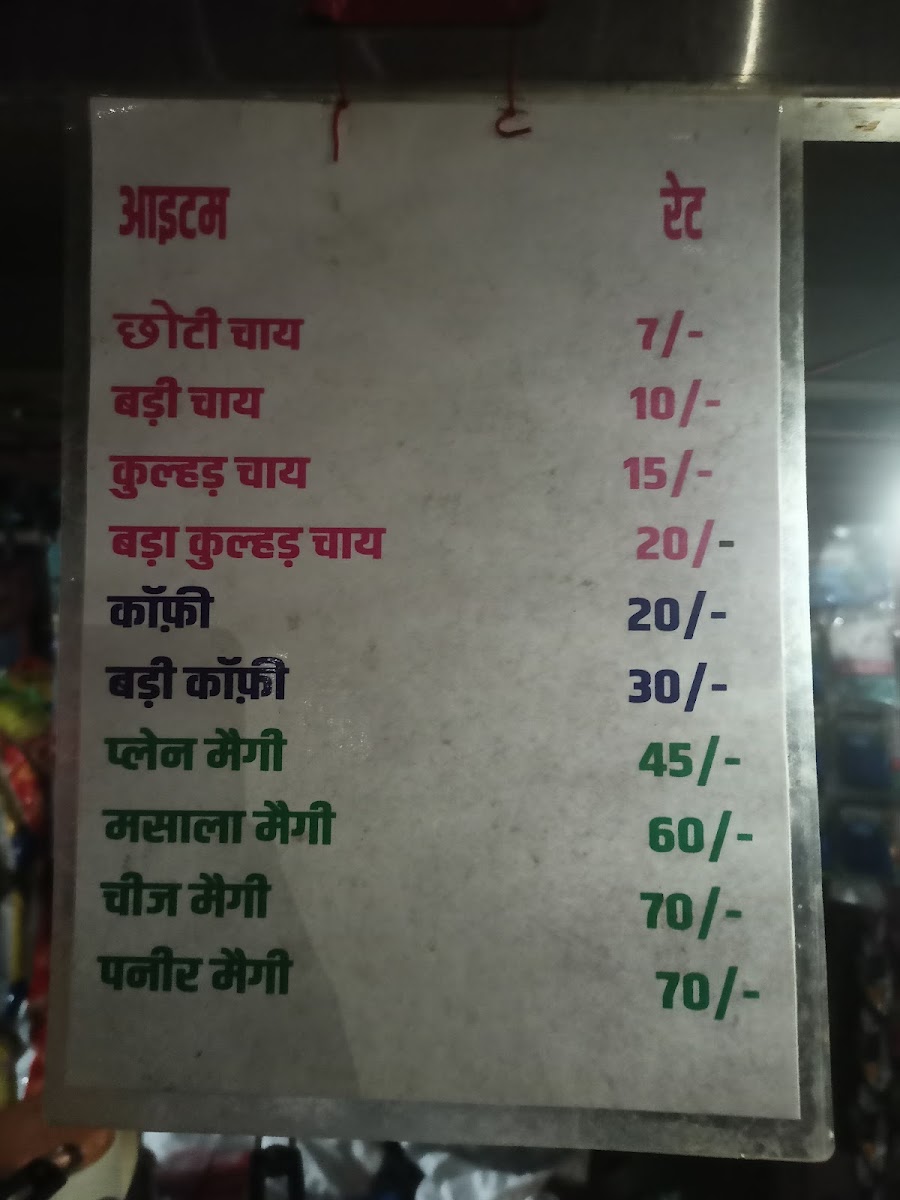 आइटम रेट
छोटी चाय 7/-
बड़ी चाय 10/-
कुल्हड़ चाय 15/-
बड़ा कुल्हड़ चाय 20/-
कॉफ़ी 20/-
बड़ी कॉफ़ी 30/-
प्लेन मैगी 45/-
मसाला मैगी 60/-
चीज मैगी 70/-
पनीर मैगी 70/-